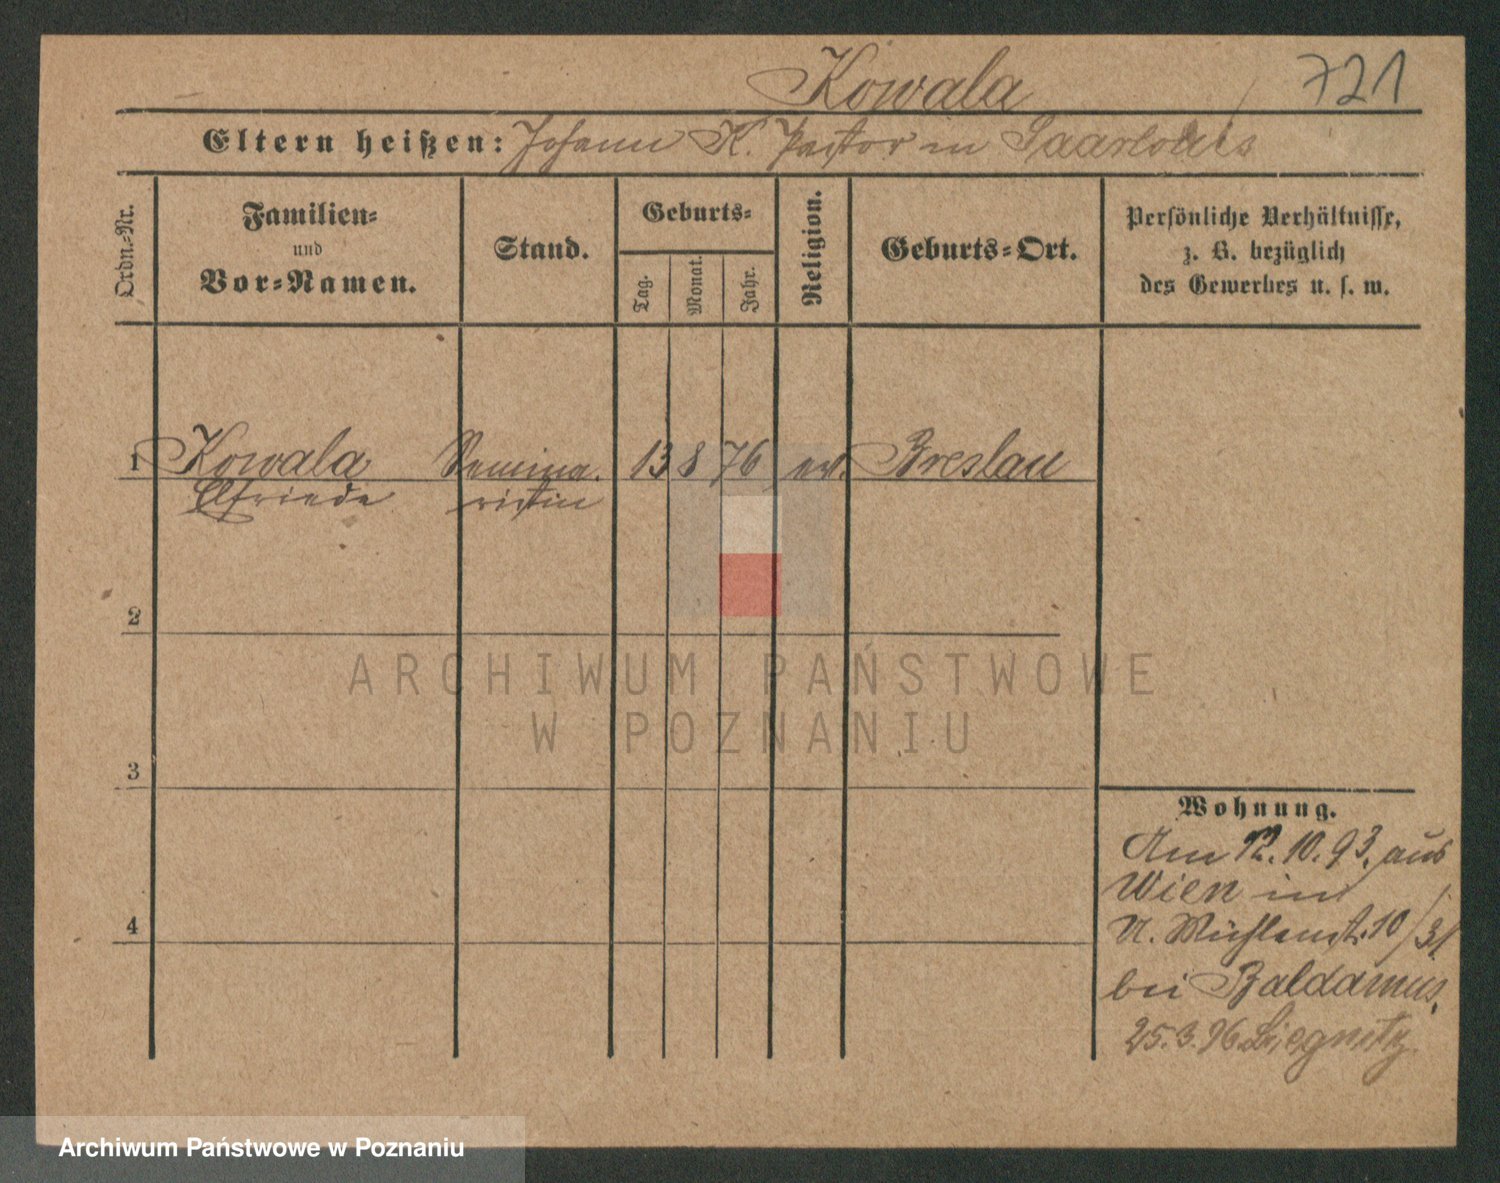 Kowala 721
Eltern heißen: Johann K. Pastor in Saarlouis
Ordn.-Nr.
Familien-
und
Vor-Namen.
Stand.
Geburts-
Tag.
Monat.
Jahr.
Religion.
Geburts-Ort.
Persönliche Verhältnisse,
z. B. bezüglich
des Gewerbes u. s. w.
1 Kowala Semina- 13 8 76 ev. Breslau
Elfriede ristin
2
ARCHIWUM PAŃSTWOWE
W POZNANIU
3
Wohnung.
Am 12.10.93. aus
Wien in
4
N. Mühlenstr. 10/31
bei Baldamus.
25.3.96 Liegnitz
Archiwum Państwowe w Poznaniu